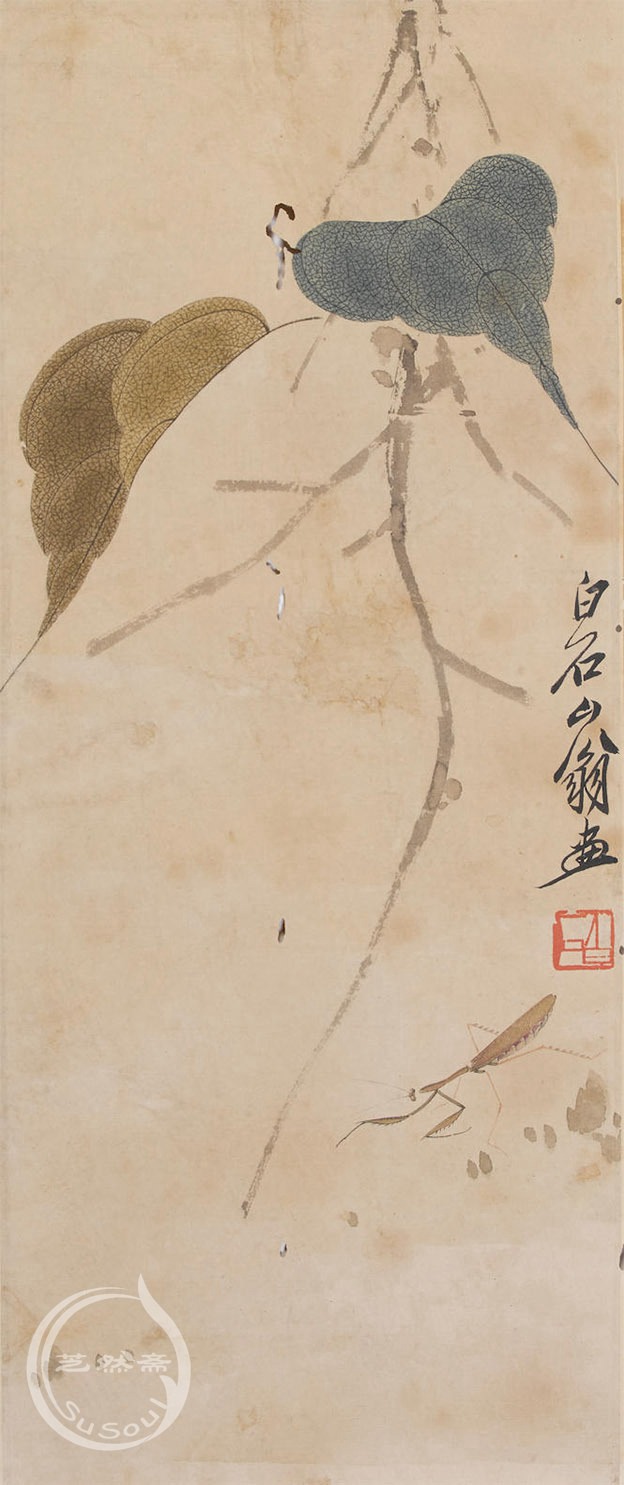 白石山翁画
芝然斋
SuSoul